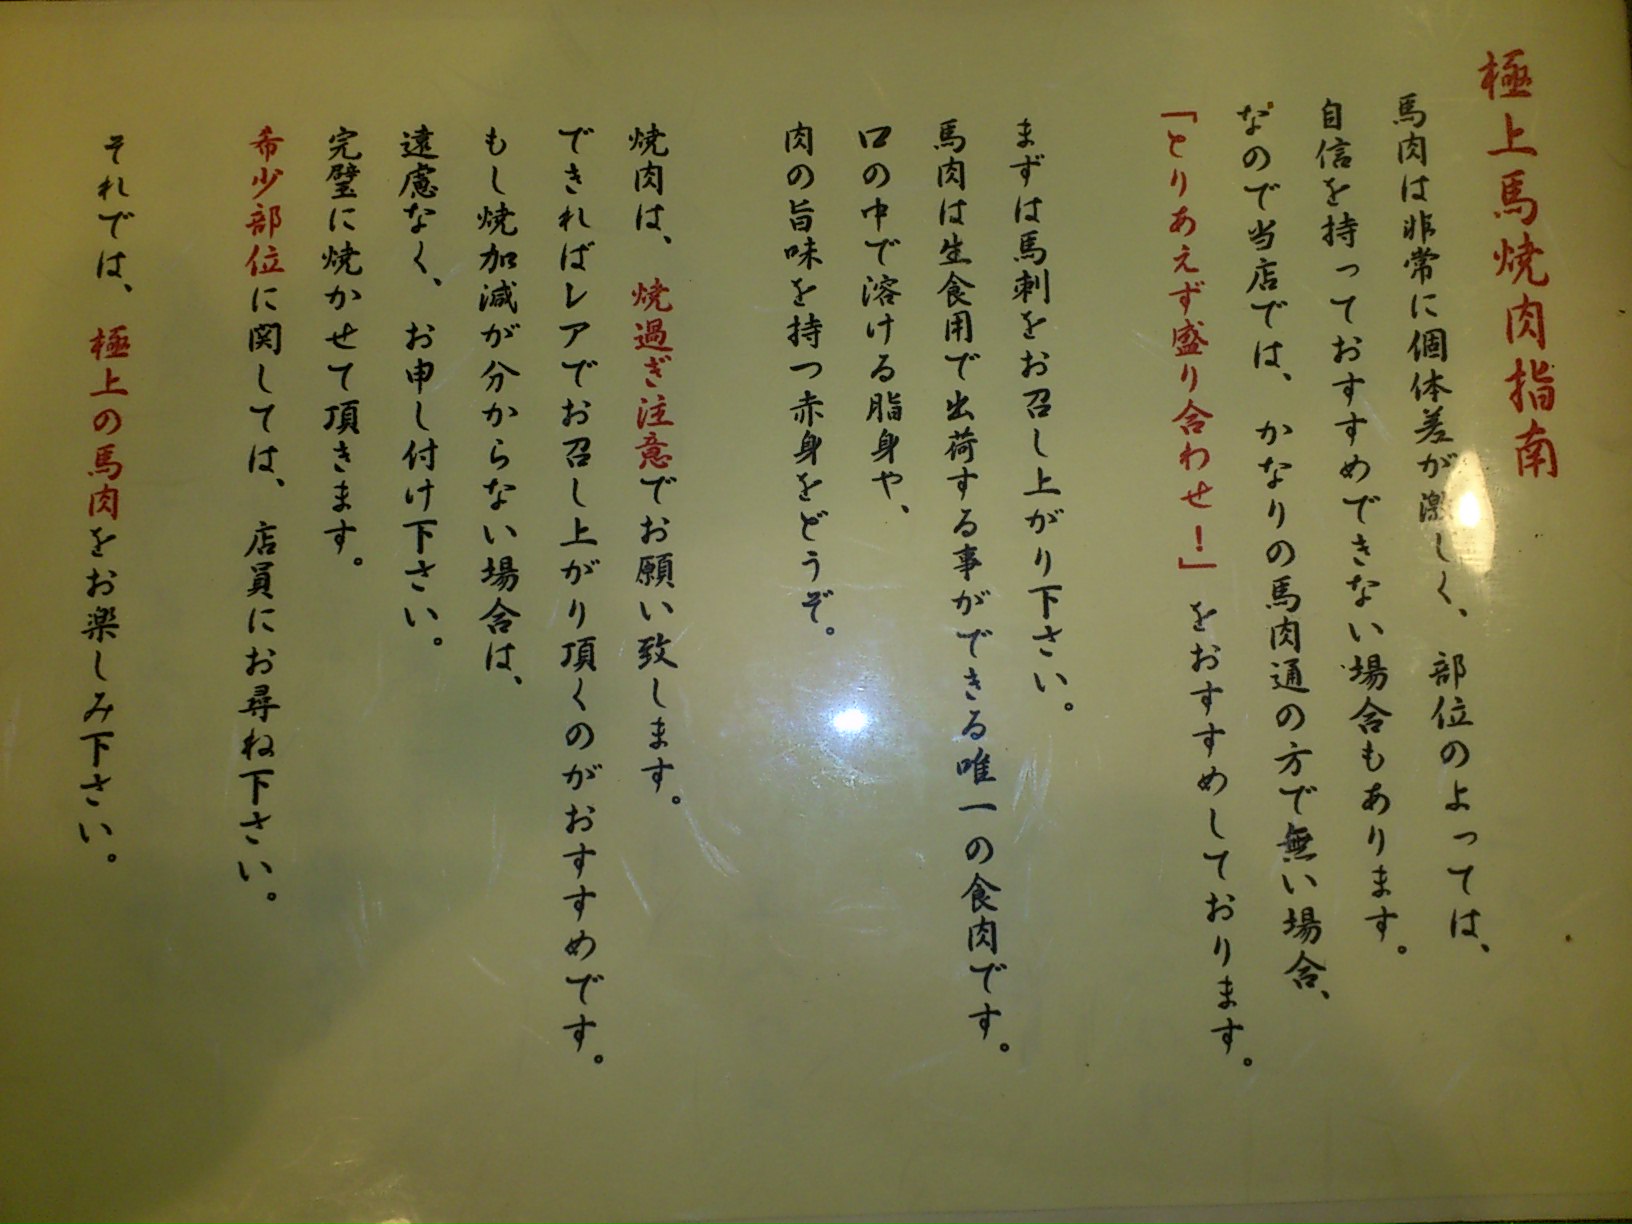 極上馬焼肉指南
馬肉は非常に個体差が激しく、部位のよっては、
自信を持っておすすめできない場合もあります。
なので当店では、かなりの馬肉通の方で無い場合、
「とりあえず盛り合わせ！」をおすすめしております。
まずは馬刺をお召し上がり下さい。
馬肉は生食用で出荷する事ができる唯一の食肉です。
口の中で溶ける脂身や、
肉の旨味を持つ赤身をどうぞ。
焼肉は、焼過ぎ注意でお願い致します。
できればレアでお召し上がり頂くのがおすすめです。
もし焼加減が分からない場合は、
遠慮なく、お申し付け下さい。
完璧に焼かせて頂きます。
希少部位に関しては、店員にお尋ね下さい。
それでは、極上の馬肉をお楽しみ下さい。